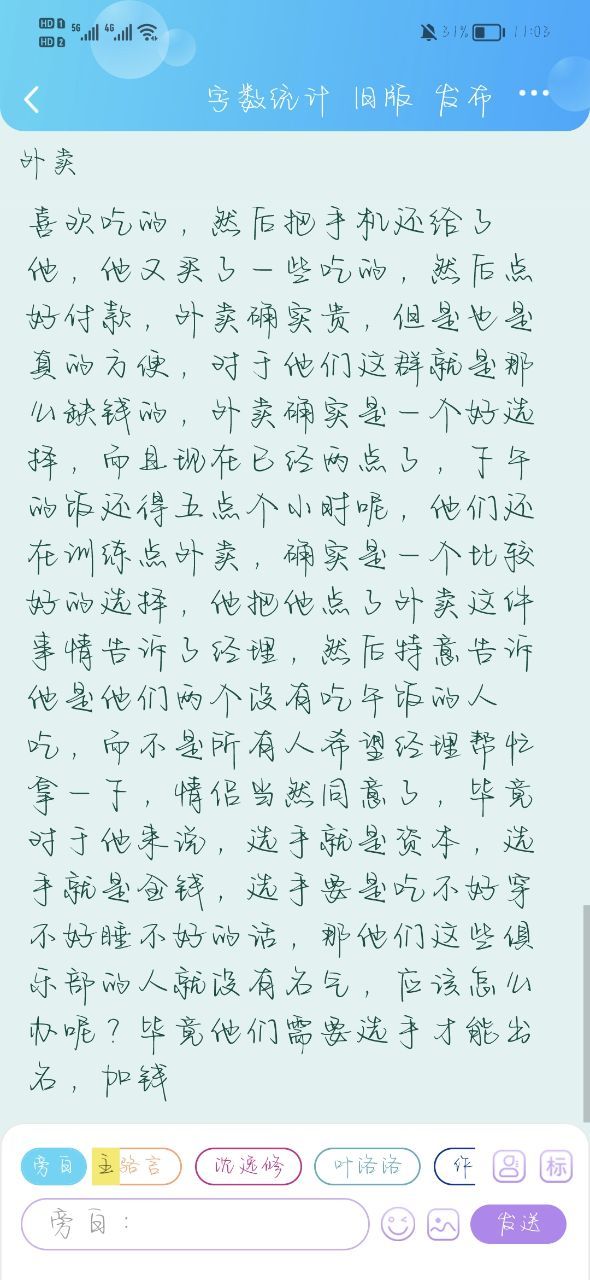 HD 1 5G 4G 31% 11:03
HD 2
字数统计 旧版 发布
外卖
喜欢吃的，然后把手机还给了
他，他又买了一些吃的，然后点
好付款，外卖确实贵，但是也是
真的方便，对于他们这群就是那
么缺钱的，外卖确实是一个好选
择，而且现在已经两点了，下午
的饭还得五点个小时呢，他们还
在训练点外卖，确实是一个比较
好的选择，他把他点了外卖这件
事情告诉了经理，然后特意告诉
他是他们两个没有吃午饭的人
吃，而不是所有人希望经理帮忙
拿一下，情侣当然同意了，毕竟
对于他来说，选手就是资本，选
手就是金钱，选手要是吃不好穿
不好睡不好的话，那他们这些俱
乐部的人就没有名气，应该怎么
办呢？毕竟他们需要选手才能出
名，加钱
旁白 主 骆言 沈逸修 叶洛洛 作 标
旁白： 发送